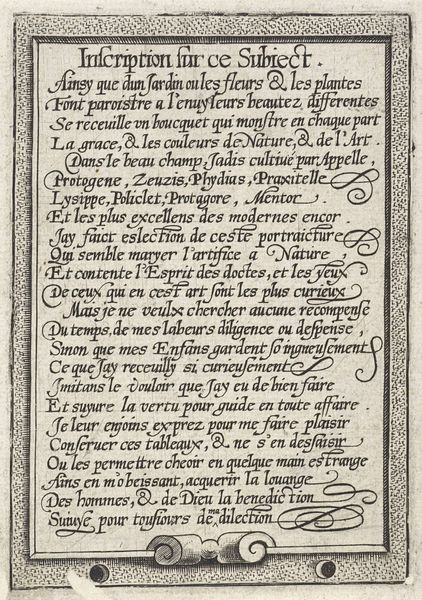 Inscription sur ce Subiect.
Ainsy que d'un Jardin ou les fleurs & les plantes
Font paroistre a l'enuy leurs beautez differentes
Se receuille vn boucquet qui monstre en chaque part
La grace, & les couleurs de Nature, & de l'Art.
Dans le beau champ, Jadis cultiué par Appelle,
Protogene, Zeuzis, Phydias, Praxitelle
Lysippe, Policlet, Protagore, Mentor.
Et les plus excellens des modernes encor.
Jay faict eslection de ceste portraicture
Qui semble maryer l'artifice a Nature,
Et contente l'Esprit des doctes, et les yeux
De ceux qui en cest art sont les plus curieux
Mais je ne veulx chercher aucune recompense
Du temps, de mes labeurs diligence ou despense,
Sinon que mes Enfans gardent soingneusement
Ce que Jay receuilly si curieusement
Jmitans le vouloir que Jay eu de bien faire
Et suyure la vertu pour guide en toute affaire.
Je leur enjoins exprez pour me faire plaisir
Conseruer ces tableaux, & ne s'en dessaisir
Ou les permettre cheoir en quelque main estrange
Ains en m'obeissant, acquerir la louange
Des hommes, & de Dieu la benediction
Suiuye pour tousiours de ma dilection